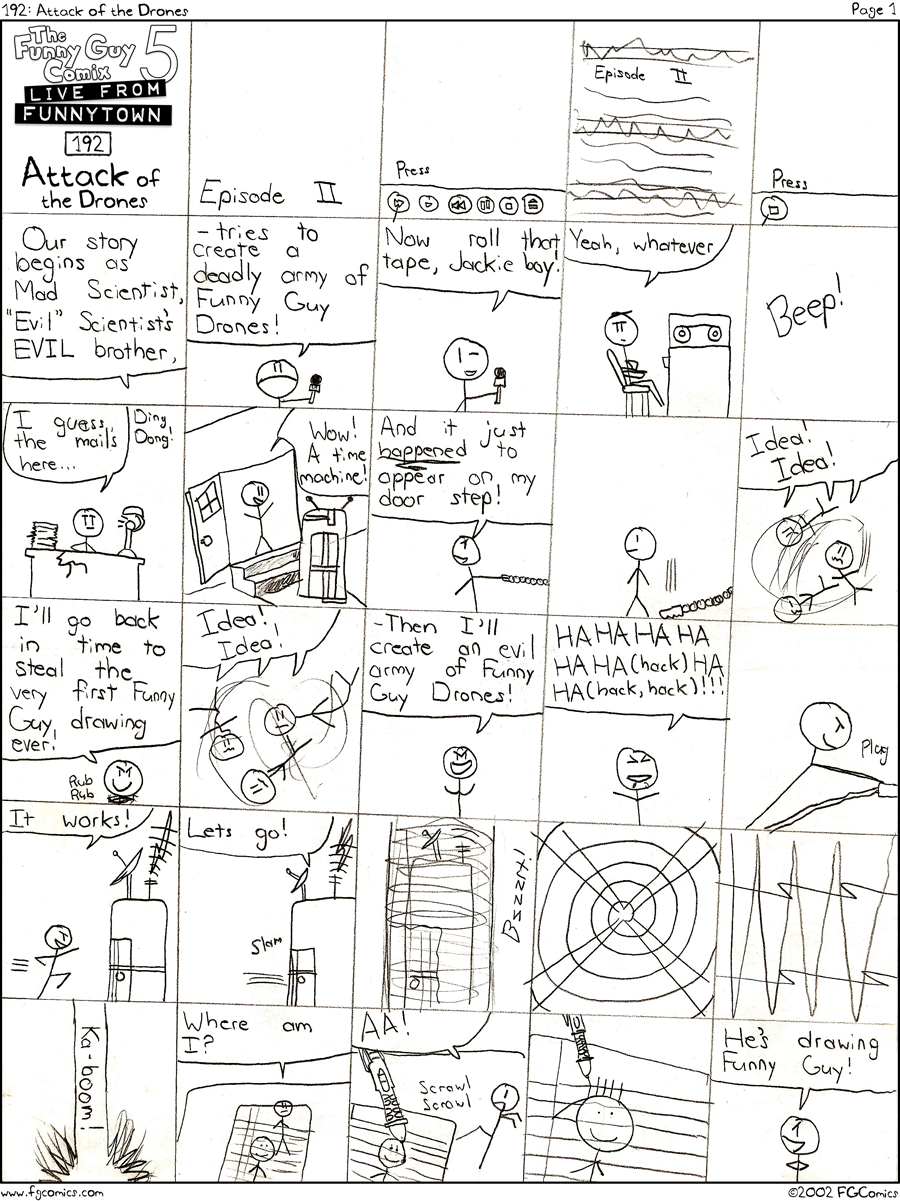 192: Attack of the Drones
Page 1
The
Funny Guy
Comix 5
LIVE FROM
FUNNYTOWN
192
Attack of
the Drones
Episode II
Press
Episode II
Press
Our story
begins as
Mad Scientist,
"Evil" Scientist's
EVIL brother,
-tries to
create a
deadly army of
Funny Guy
Drones!
Now roll that
tape, Jackie boy!
Yeah, whatever
Beep!
I guess
the mail's
here...
Ding,
Dong!
Wow!
A time
machine!
And it just
happened to
appear on my
door step!
Idea!
Idea!
I'll go back
in time to
steal the
very first Funny
Guy, drawing
ever!
Rub
Rub
Idea!
Idea!
-Then I'll
create an evil
army of Funny
Guy Drones!
HA HA HA HA
HA HA (hack) HA
HA (hack, hack)!!!
Plug
It works!
Lets go!
Slam
Bzzzt!
Ka-boom!
Where am
I?
AA!
Scrawl
Scrawl
He's drawing
Funny Guy!
www.fgcomics.com
©2002 FGComics